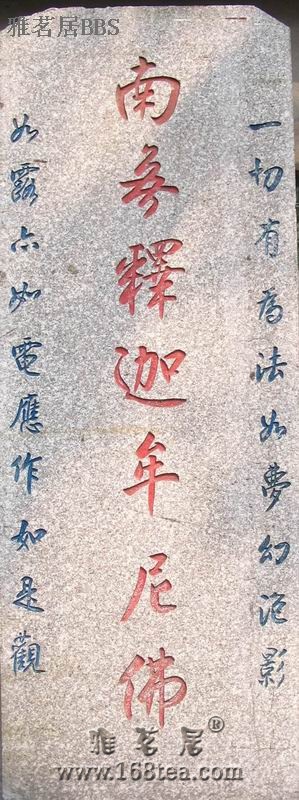 雅茗居BBS
一切有為法如夢幻泡影
南无釋迦牟尼佛
如露亦如電應作如是觀
雅茗居®
www.168tea.com